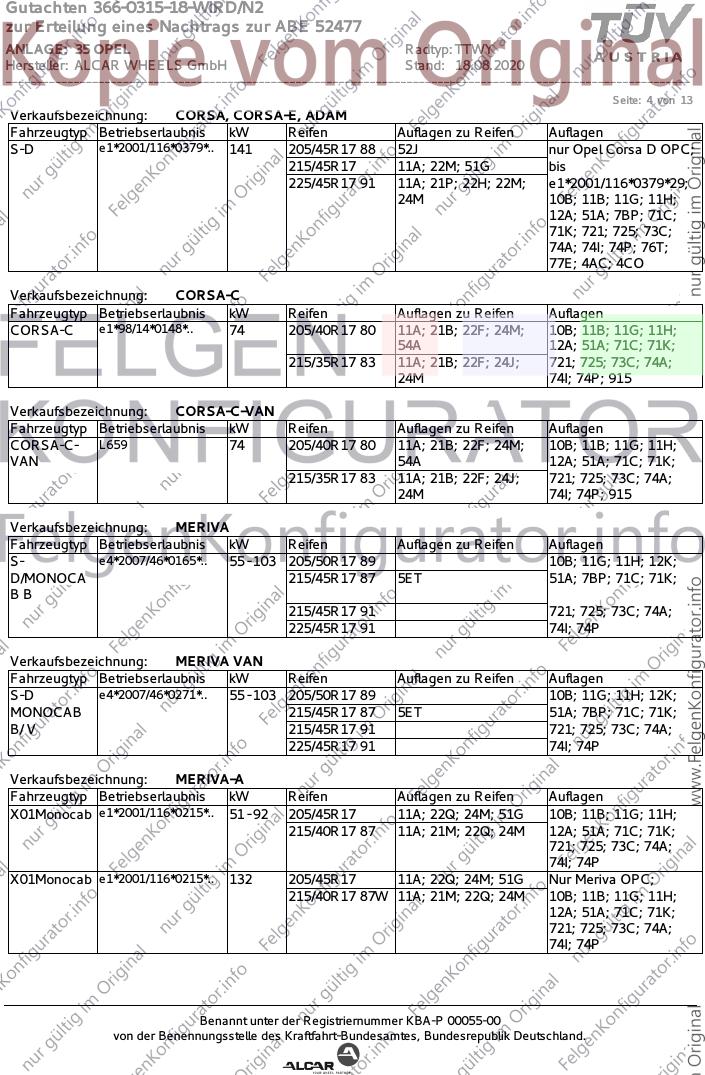 Gutachten 366-0315-18-WIRD/N2
zur Erteilung eines Nachtrags zur ABE 52477
ANLAGE: 35 OPEL
Hersteller: ALCAR WHEELS GmbH
Radtyp: TTWY
Stand: 18.08.2020
TÜV
AUSTRIA
Kopie vom Original
Seite: 4 von 13
Verkaufsbezeichnung: CORSA, CORSA-E, ADAM
Fahrzeugtyp Betriebserlaubnis kW Reifen Auflagen zu Reifen Auflagen
S-D e1*2001/116*0379*.. 141 205/45R17 88 52J nur Opel Corsa D OPC;
215/45R17 11A; 22M; 51G bis
225/45R17 91 11A; 21P; 22H; 22M; e1*2001/116*0379*29;
24M 10B; 11B; 11G; 11H;
12A; 51A; 7BP; 71C;
71K; 721; 725; 73C;
74A; 74I; 74P; 76T;
77E; 4AC; 4CO
Verkaufsbezeichnung: CORSA-C
Fahrzeugtyp Betriebserlaubnis kW Reifen Auflagen zu Reifen Auflagen
CORSA-C e1*98/14*0148*.. 74 205/40R17 80 11A; 21B; 22F; 24M; 10B; 11B; 11G; 11H;
54A 12A; 51A; 71C; 71K;
215/35R17 83 11A; 21B; 22F; 24J; 721; 725; 73C; 74A;
24M 74I; 74P; 915
FELGEN
KONFIGURATOR
Verkaufsbezeichnung: CORSA-C-VAN
Fahrzeugtyp Betriebserlaubnis kW Reifen Auflagen zu Reifen Auflagen
CORSA-C- L659 74 205/40R17 80 11A; 21B; 22F; 24M; 10B; 11B; 11G; 11H;
VAN 54A 12A; 51A; 71C; 71K;
215/35R17 83 11A; 21B; 22F; 24J; 721; 725; 73C; 74A;
24M 74I; 74P; 915
FelgenKonfigurator.info
Verkaufsbezeichnung: MERIVA
Fahrzeugtyp Betriebserlaubnis kW Reifen Auflagen zu Reifen Auflagen
S- e4*2007/46*0165*.. 55-103 205/50R17 89 10B; 11G; 11H; 12K;
D/MONOCA 215/45R17 87 5ET 51A; 7BP; 71C; 71K;
B B
215/45R17 91 721; 725; 73C; 74A;
225/45R17 91 74I; 74P
Verkaufsbezeichnung: MERIVA VAN
Fahrzeugtyp Betriebserlaubnis kW Reifen Auflagen zu Reifen Auflagen
S-D e4*2007/46*0271*.. 55-103 205/50R17 89 10B; 11G; 11H; 12K;
MONOCAB 215/45R17 87 5ET 51A; 7BP; 71C; 71K;
B/V 215/45R17 91 721; 725; 73C; 74A;
225/45R17 91 74I; 74P
Verkaufsbezeichnung: MERIVA-A
Fahrzeugtyp Betriebserlaubnis kW Reifen Auflagen zu Reifen Auflagen
X01Monocab e1*2001/116*0215*.. 51-92 205/45R17 11A; 22Q; 24M; 51G 10B; 11B; 11G; 11H;
215/40R17 87 11A; 21M; 22Q; 24M 12A; 51A; 71C; 71K;
721; 725; 73C; 74A;
74I; 74P
X01Monocab e1*2001/116*0215*.. 132 205/45R17 11A; 22Q; 24M; 51G Nur Meriva OPC;
215/40R17 87W 11A; 21M; 22Q; 24M 10B; 11B; 11G; 11H;
12A; 51A; 71C; 71K;
721; 725; 73C; 74A;
74I; 74P
www.FelgenKonfigurator.info
nur gültig im Original
Benannt unter der Registriernummer KBA-P 00055-00
von der Benennungsstelle des Kraftfahrt-Bundesamtes, Bundesrepublik Deutschland.
ALCAR